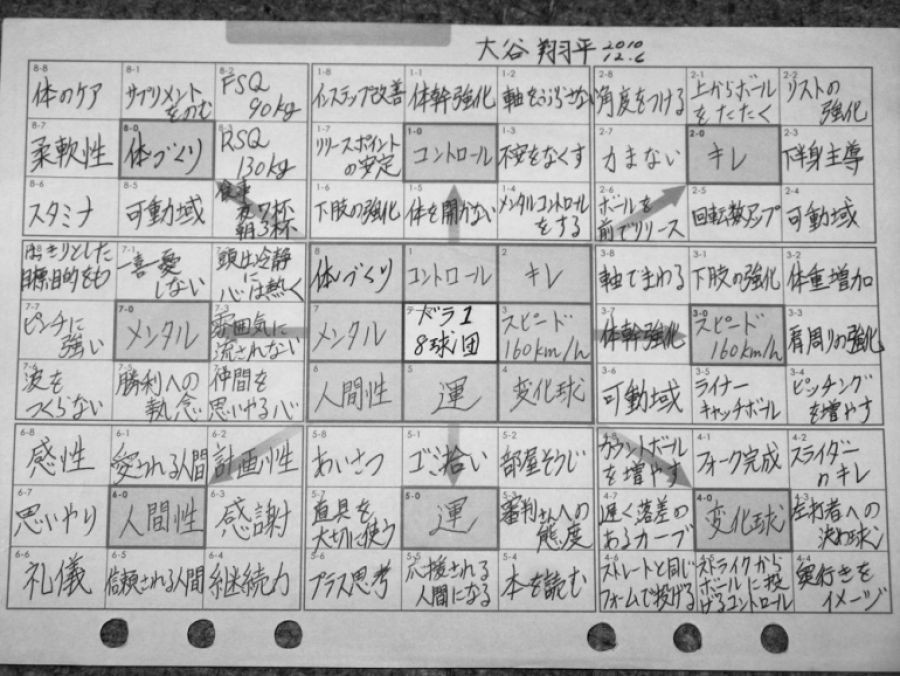 大谷 翔平 2010
12.6
8-8
体のケア
8-1
サプリメント
をのむ
8-2
FSQ
90kg
8-7
柔軟性
8-0
体づくり
8-3
RSQ
130kg
8-6
スタミナ
8-5
可動域
食事
夜7杯
朝3杯
1-8
インステップ改善
1-1
体幹強化
1-2
軸をぶらさない
1-7
リリースポイント
の安定
1-0
コントロール
1-3
不安をなくす
1-6
下肢の強化
1-5
体を開かない
1-4
メンタルコントロール
をする
2-8
角度をつける
2-1
上からボール
をたたく
2-2
リストの
強化
2-7
力まない
2-0
キレ
2-3
下半身主導
2-6
ボールを
前でリリース
2-5
回転数アップ
2-4
可動域
7-8
はっきりとした
目標目的をもつ
7-1
一喜一憂
しない
7-2
頭は冷静
に
心は熱く
7-7
ピンチに
強い
7-0
メンタル
7-3
雰囲気に
流されない
7-6
波を
つくらない
7-5
勝利への
執念
7-4
仲間を
思いやる心
8
体づくり
1
コントロール
2
キレ
7
メンタル
ドラ1
8球団
3
スピード
160km/h
6
人間性
5
運
4
変化球
3-8
軸でまわる
3-1
下肢の強化
3-2
体重増加
3-7
体幹強化
3-0
スピード
160km/h
3-3
肩周りの強化
3-6
可動域
3-5
ライナー
キャッチボール
3-4
ピッチング
を増やす
6-8
感性
6-1
愛される人間
6-2
計画性
6-7
思いやり
6-0
人間性
6-3
感謝
6-6
礼儀
6-5
信頼される人間
6-4
継続力
5-8
あいさつ
5-1
ゴミ拾い
5-2
部屋そうじ
5-7
道具を
大切に使う
5-0
運
5-3
審判さんへの
態度
5-6
プラス思考
5-5
応援される
人間になる
5-4
本を読む
4-8
カウントボール
を増やす
4-1
フォーク完成
4-2
スライダー
のキレ
4-7
遅く落差の
あるカーブ
4-0
変化球
4-3
左打者への
決め球
4-6
ストレートと同じ
フォームで投げる
4-5
ストライクから
ボールに投
げるコントロール
4-4
奥行きを
イメージ